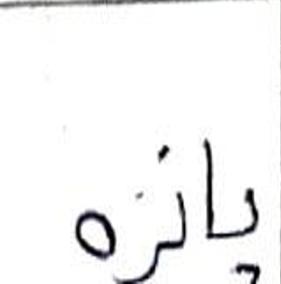 پانزه